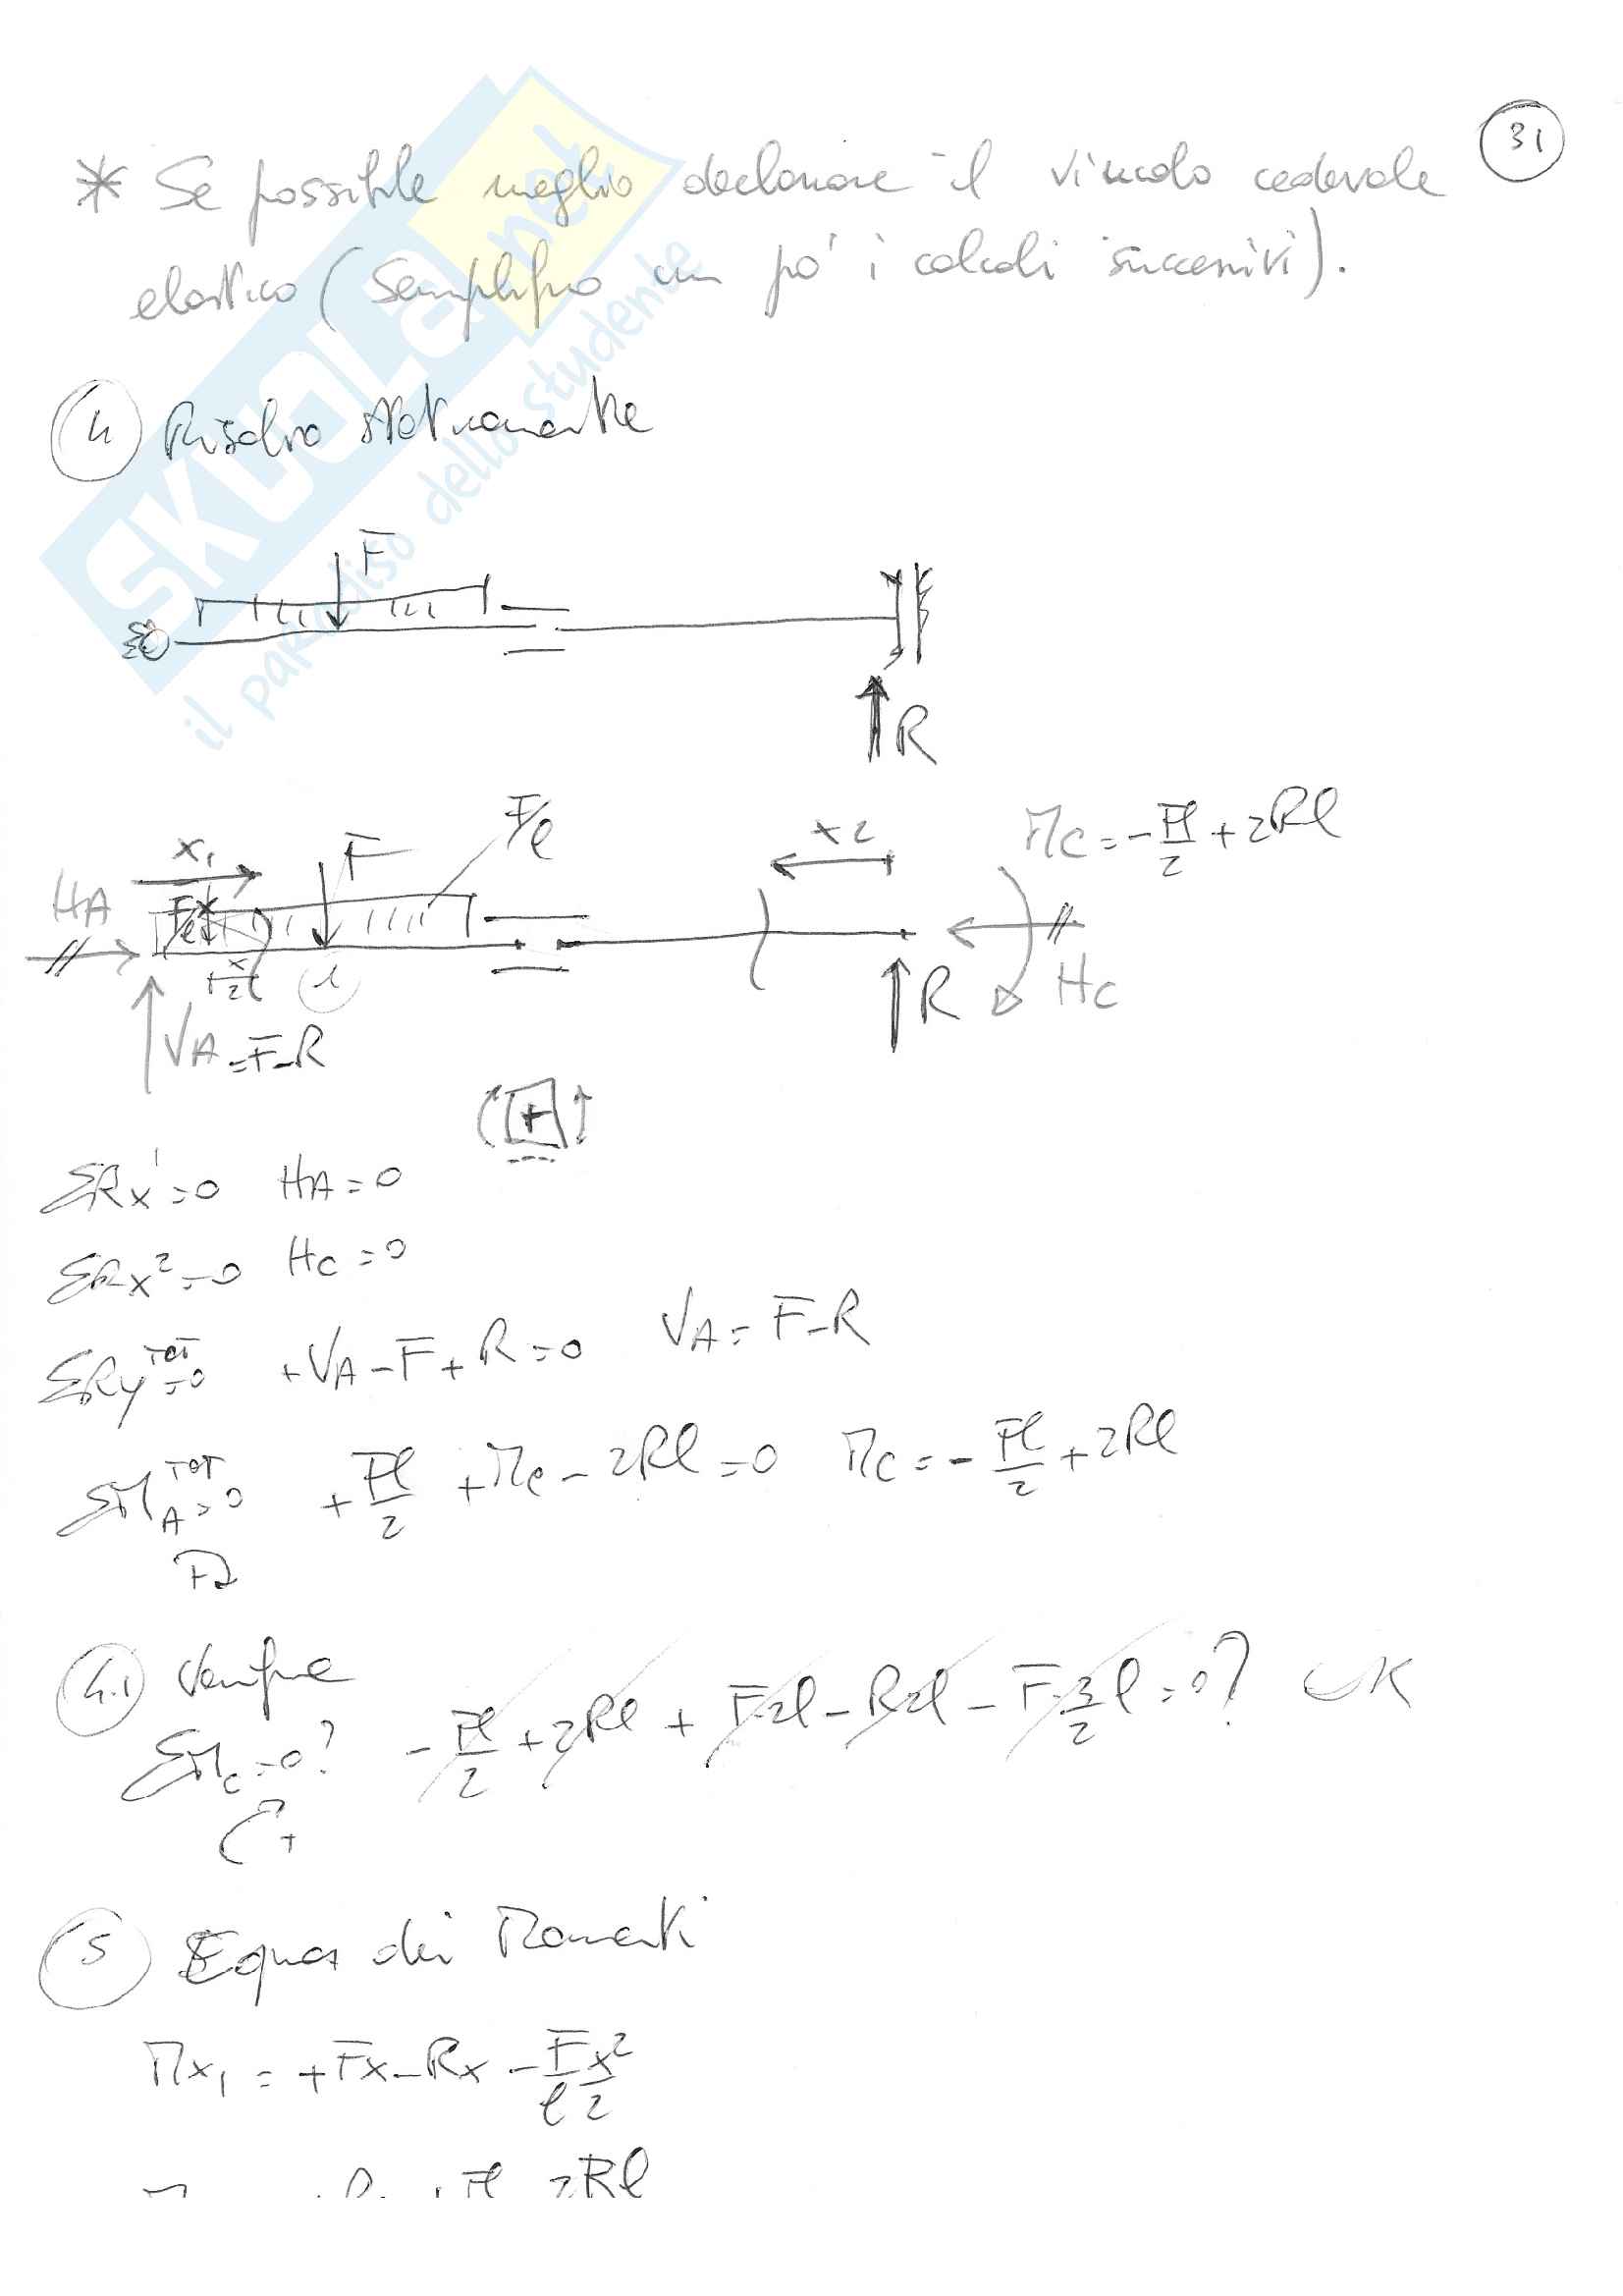 31
* Se possibile meglio declassare il vincolo cedevole
elastico (semplifico un po' i calcoli successivi).
SKUOLA.net
il paradiso dello studente
4 Risolvo staticamente
F
R
x₁ F F/l x₂ Mc = -Fl/2 + 2Rl
HA Fx/l
x/2 1 R Hc
VA = F-R
+
ΣRx¹=0 HA=0
ΣRx²=0 Hc=0
ΣRy^TOT=0 +VA-F+R=0 VA=F-R
ΣM_A^TOT=0 +Fl/2 +Mc-2Rl=0 Mc=-Fl/2+2Rl
4.1 Verifica
ΣMc=0? -Fl/2+2Rl+F2l-R2l-F3/2l=0? OK
+
5 Equaz dei Momenti
Mx₁ = +Fx-Rx-F/l x²/2